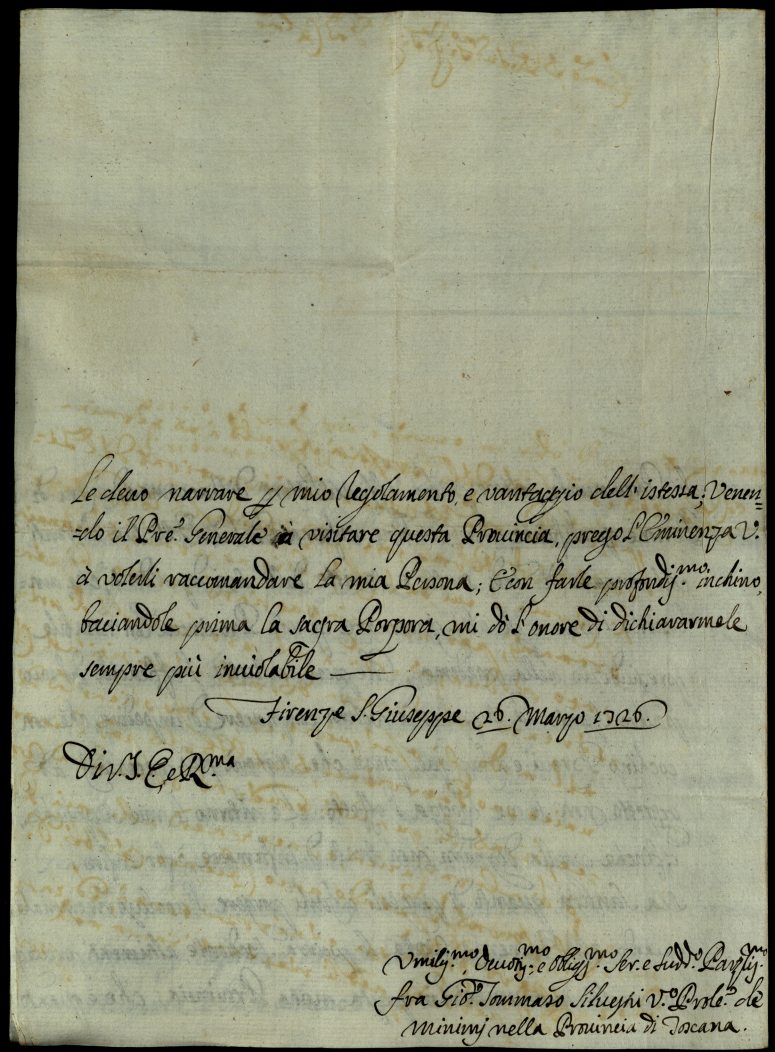 Le devo narrare p mio regolamento, e vantaggio dell'istessa; Venen=
=do il Pre. Generale à visitare questa Provincia, prego l'Eminenza V.
à volerli raccomandare la mia Persona; E con farle profondiss.mo inchino,
baciandole prima la sacra Porpora, mi dò l'onore di dichiararmele
sempre più inviolabile
Firenze S. Giuseppe 26. Marzo 1726.
Di V.S. E e R.ma
Umiliss.mo, Devotiss.mo e obligiss.mo Ser. e Sudd.o
fra Gio. Tommaso V.o Prole. de
Minimi nella Provincia di Toscana.